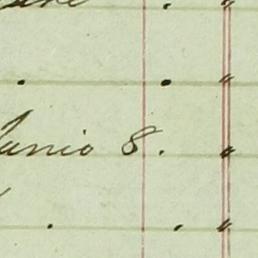 . "
. . "
Junio 8. "
. . "